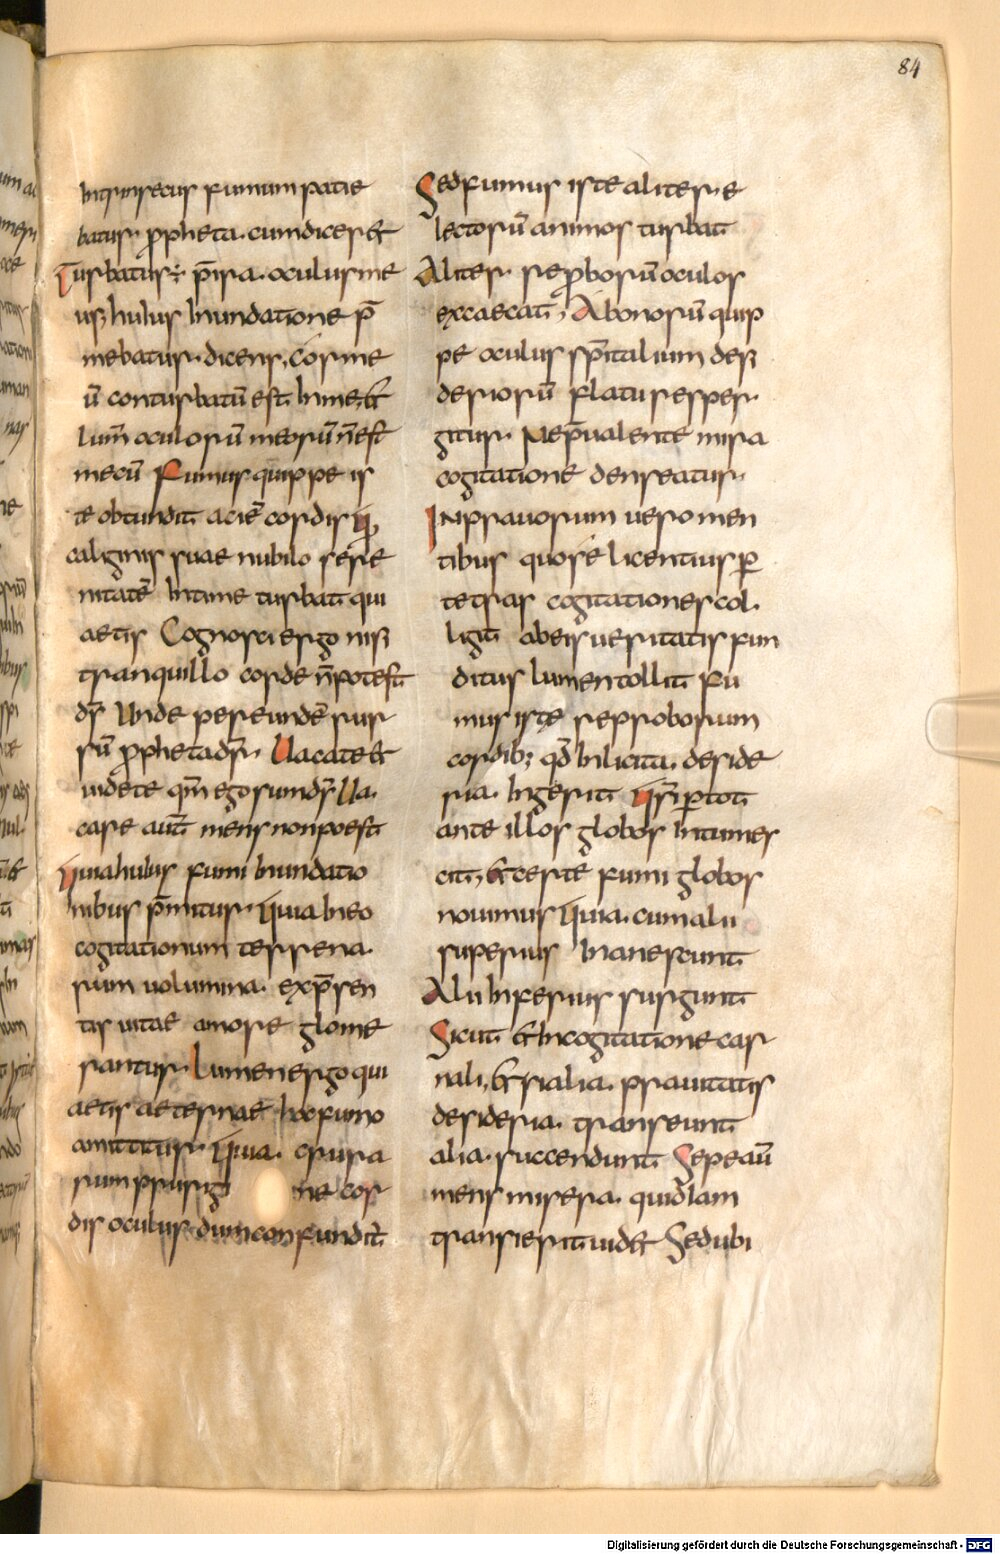 84
Intrinsecus fumum patie
batur. ꝓpheta. cum diceret
Turbatus ÷ p̄ ira. oculus me
us; huius Inundatione p̄
mebatur. dicens, Cor me
ū conturbatū est. In me, &
lum̄ oculorū meorū n̄ est
mecū Fumus quippe is
te obtundit aciē cordis q,
caliginis suae nubilo sere
nitatē Intime turbat qui
aetis Cognosci ergo nisi
tranquillo corde n̄ potest
dr̄ Unde per eundē rur
sū ꝓpheta dr̄. Uacate &
uidete qm̄ ego sum dr̄ Ua.
care aut̄ mens non poest
Quia huius fumi Inundatio
nibus p̄mitur. Quia In eo
cogitationum terrena.
rum uolumina. ex p̄sen
tis uitae amore glome
rantur. Lumen ergo qui
aetis aeternae hoc fumo
amittitur. Quia. crura
rum prurigi ne cor
dis oculus dum confundit̄
Sed fumus iste aliter. e
lectorū animos turbat
Aliter. reꝓborū oculos
excaecat, A bonorū quip
pe oculus sp̄italium desi
deriorū flatu resper.
gitur. Ne p̄ualente misa
cogitatione denseatur.
In prauorum uero men
tibus quo se licentius ꝑ
tetras cogitationes col.
ligit ab eis ueritatis fun
ditus lumen tollit Fu
mus iste reproborum
cordib; qd̄ Inlicita. deside
ria. Ingerit qs̄i ꝑ tot
ante illos globos Intumes
cit, & certe fumi globos
nouimus Quia. cum alii
superius Inanescunt
Alii Inferius surgunt
Sicut & In cogitatione car
nali, & si alia. prauitatis
desideria. transeunt
alia. succendunt Sepe aū
mens misera. quid Iam
transierit uid& Sed ubi
Digitalisierung gefördert durch die Deutsche Forschungsgemeinschaft - DFG